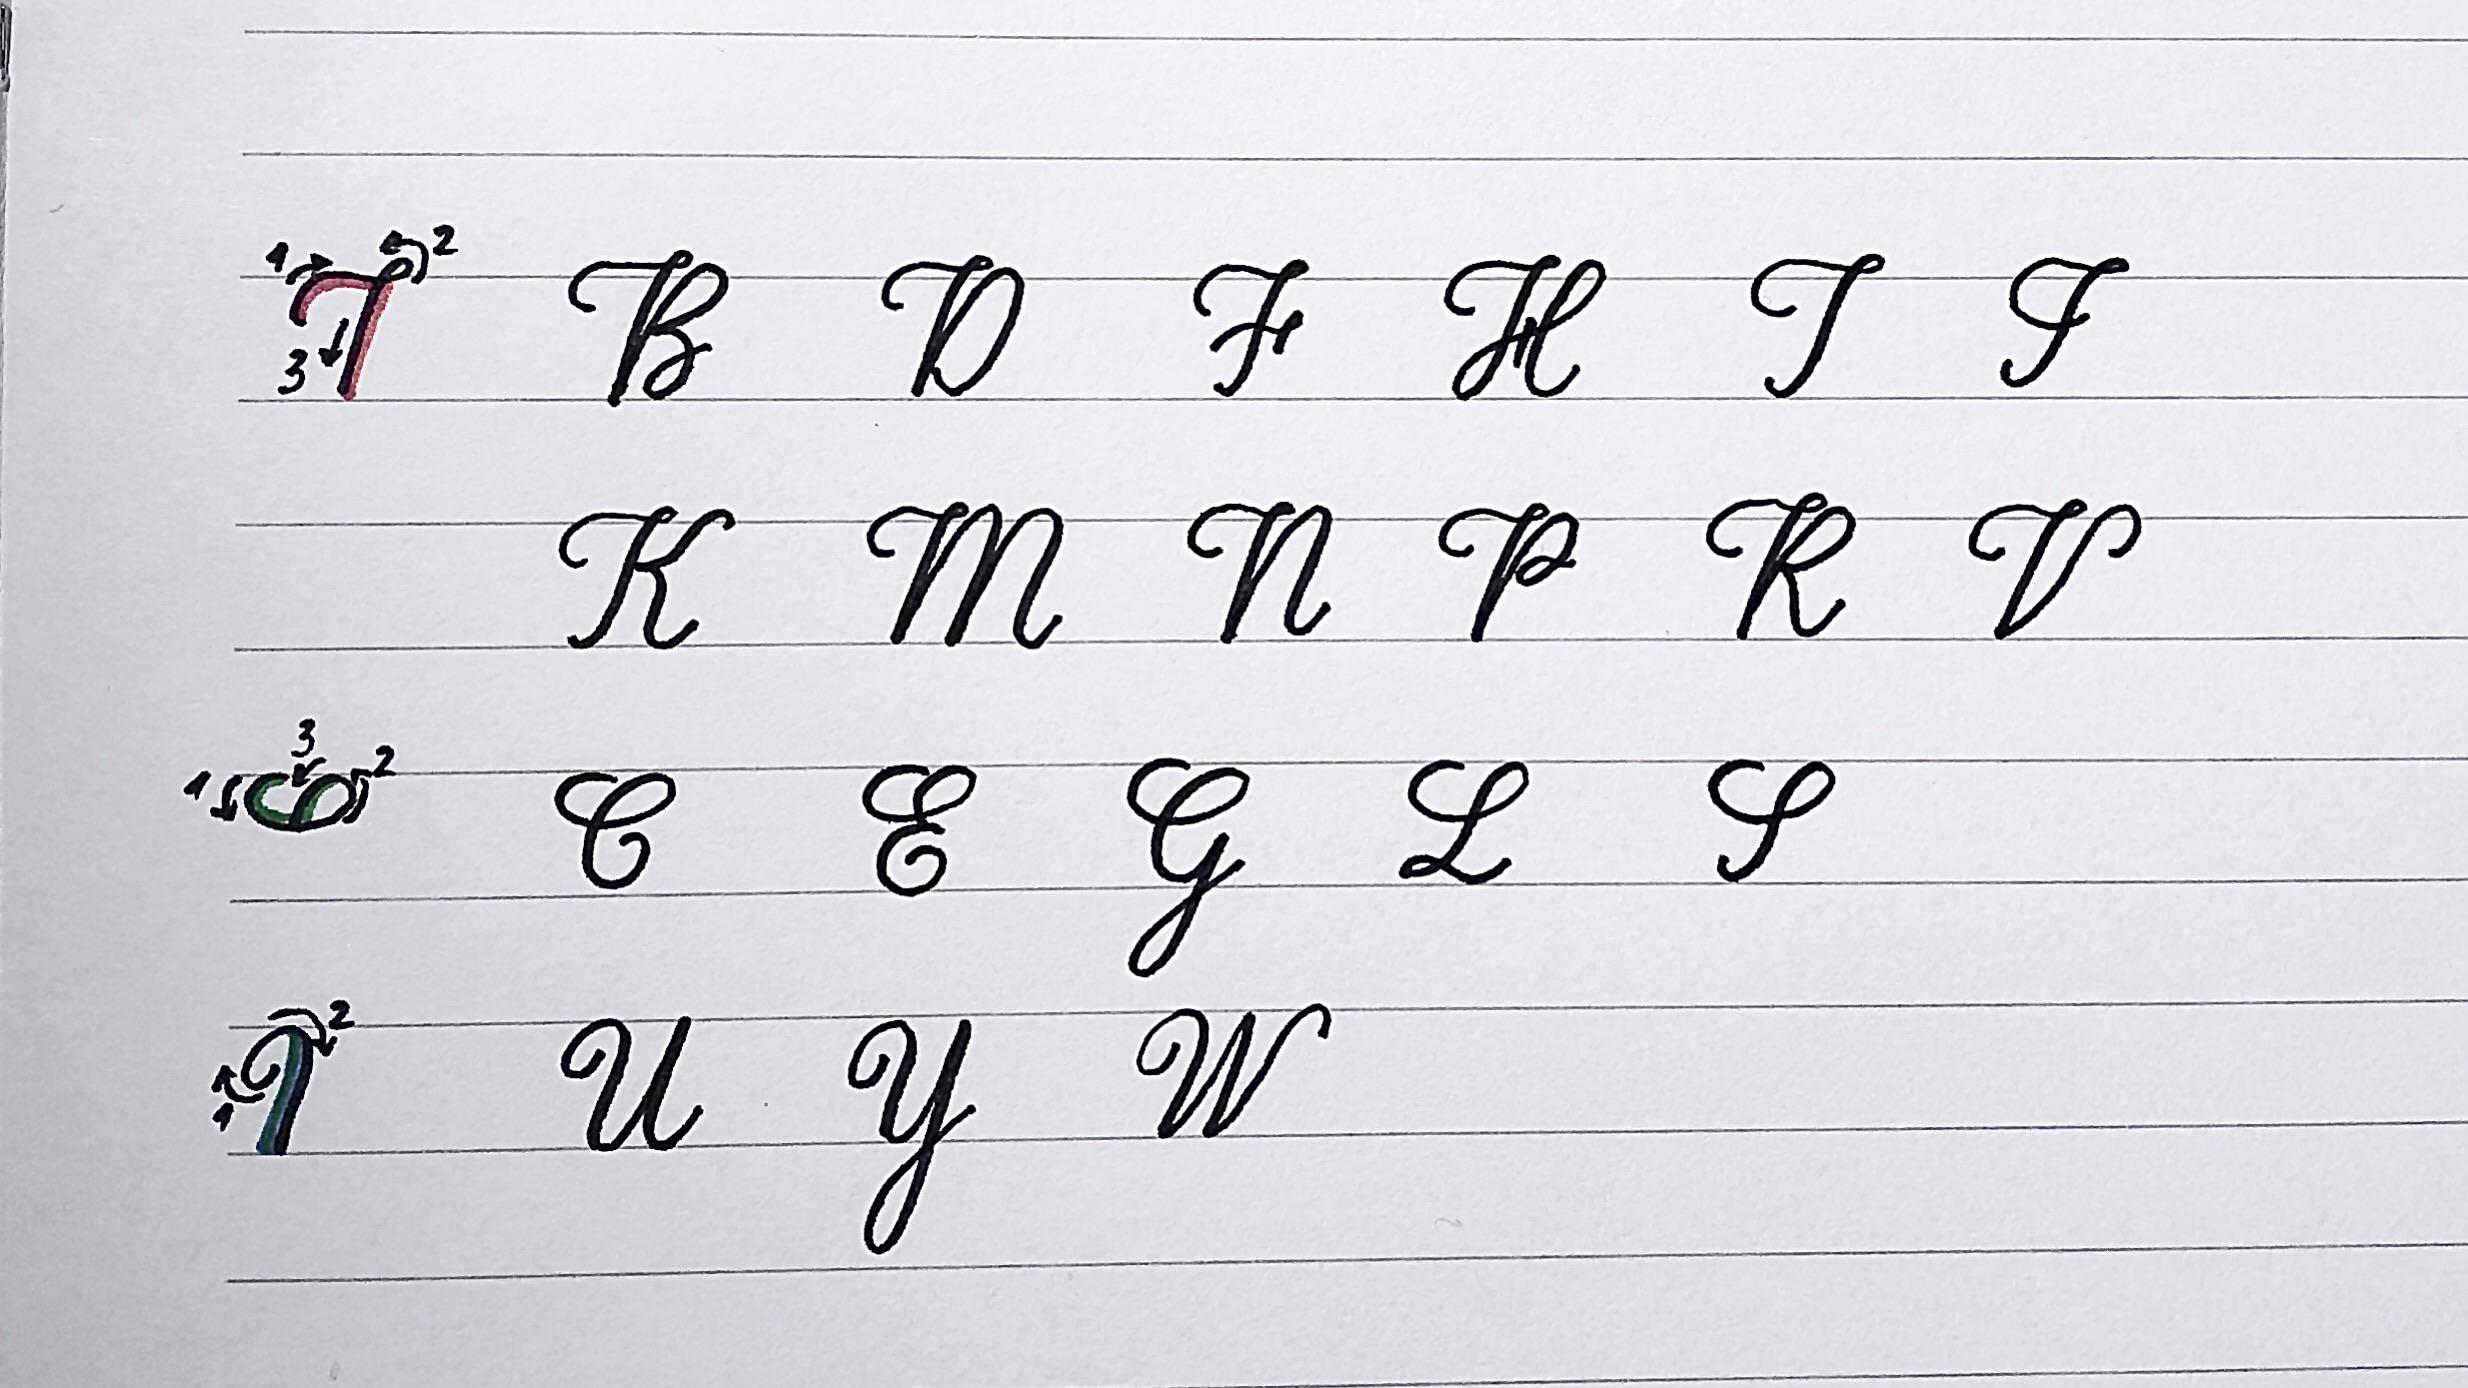 1 2 3 B D F H T I
K M N P R V
1 2 3 C E G L S
1 2 U Y W